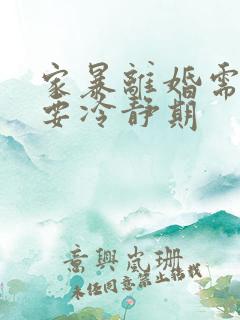 家暴離婚需
要冷靜期
意興嵐珊
未经同意禁止转载